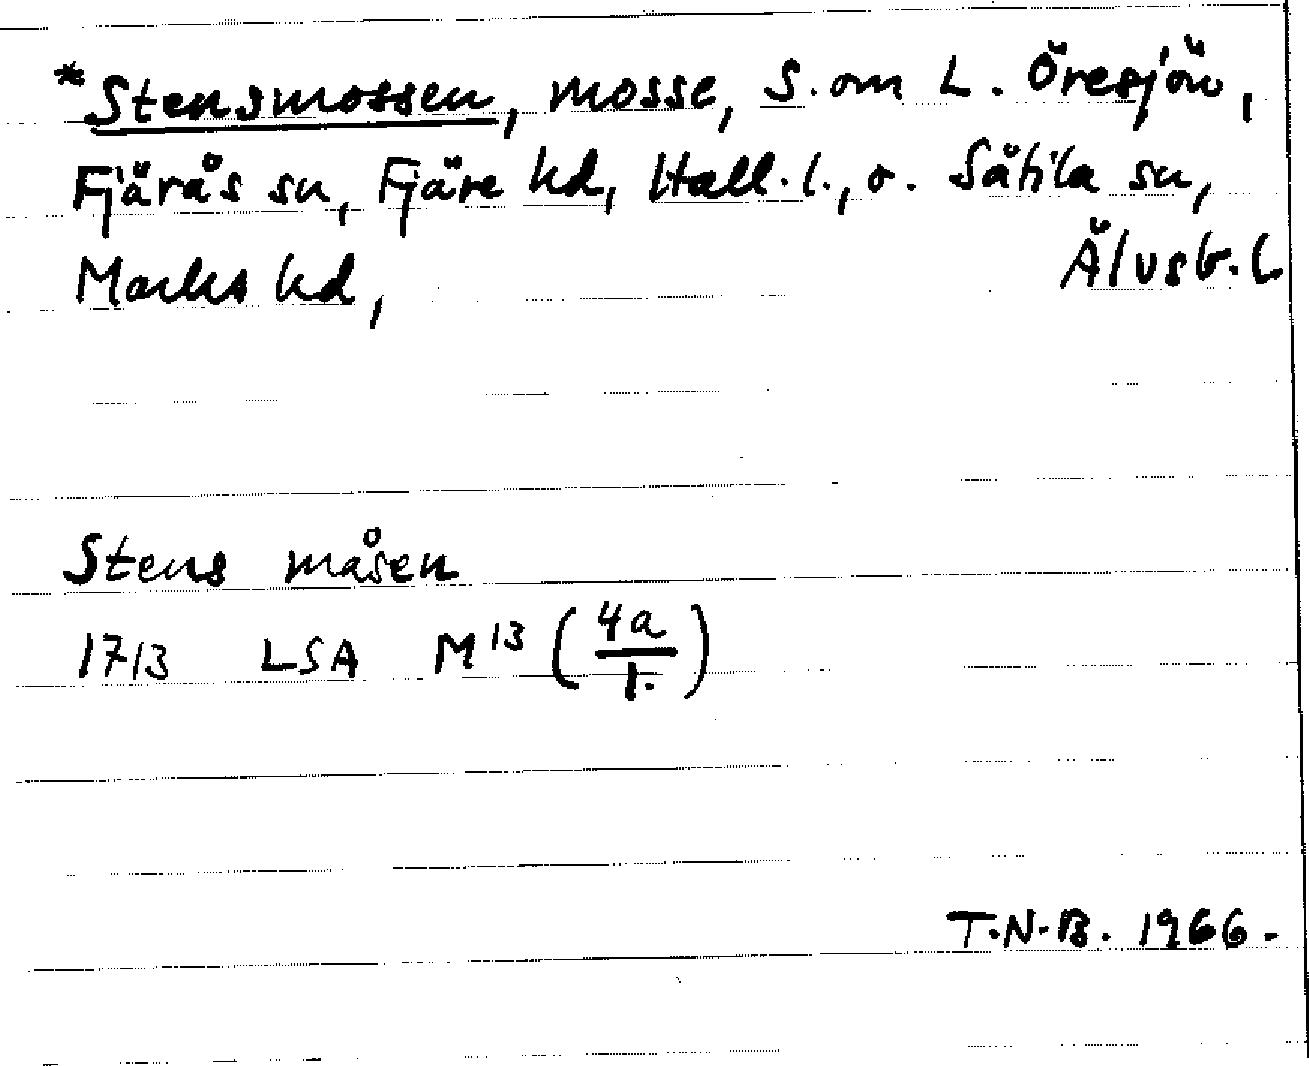 *Stensmossen, mosse, S. om L. Öresjön,
Fjärås sn, Fjäre hd, Hall. l., o. Sätila sn,
Marks hd, Älvsb. l
Stens måsen
1713 LSA M¹³ (4a/1.)
T.N.B. 1966.